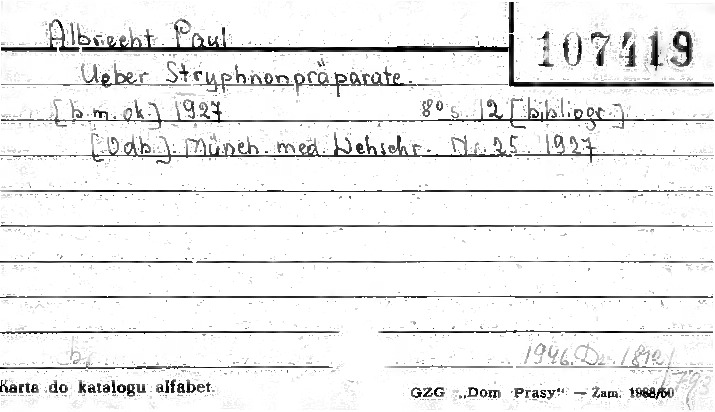 Albrecht Paul
107419
Ueber Stryphnonpräparate.
[b.m.ok] 1927 8° s. 12 [bibliogr.]
[Odb.] Münch. med. Wchschr. Nr. 25. 1927
b.
1946.D. 1812/
793
Karta do katalogu alfabet.
GZG „Dom Prasy" — Zam. 1988/60